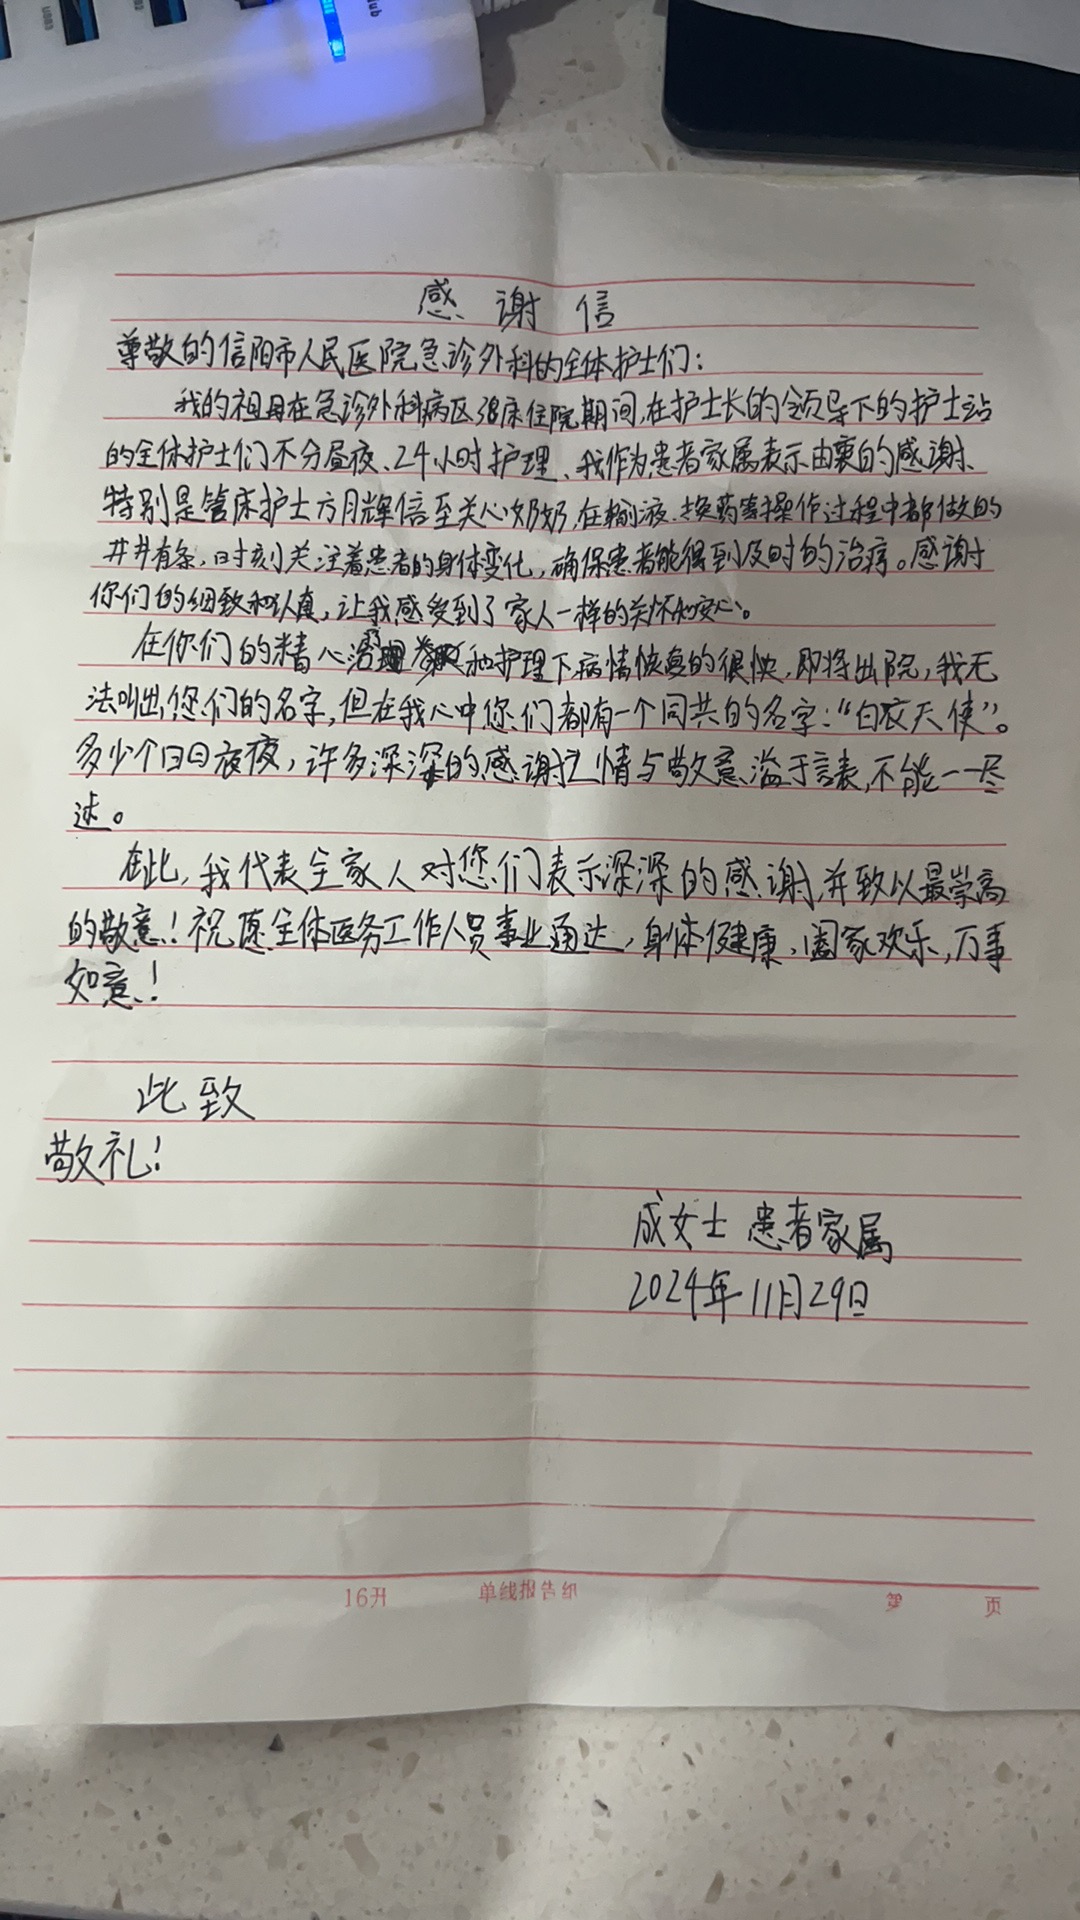 感谢信
尊敬的信阳市人民医院急诊外科的全体护士们：
我的祖母在急诊外科病区38床住院期间,在护士长的领导下的护士站
的全体护士们不分昼夜、24小时护理、我作为患者家属表示由衷的感谢、
特别是管床护士方月辉信至关心奶奶,在输液、换药等操作过程中都做的
井井有条,时刻关注着患者的身体变化,确保患者能得到及时的治疗。感谢
你们的细致和认真,让我感受到了家人一样的关怀和安心。
在你们的精心治理和护理下,病情恢复的很快,即将出院,我无
法叫出您们的名字,但在我心中你们都有一个同共的名字："白衣天使"。
多少个日日夜夜,许多深深的感谢之情与敬意溢于言表,不能一一尽
述。
在此,我代表全家人对您们表示深深的感谢,并致以最崇高
的敬意！祝愿全体医务工作人员事业通达,身体健康、阖家欢乐,万事
如意！
此致
敬礼！
成女士 患者家属
2024年11月29日
16开 单线报告纸 第 页
USB3
Hub